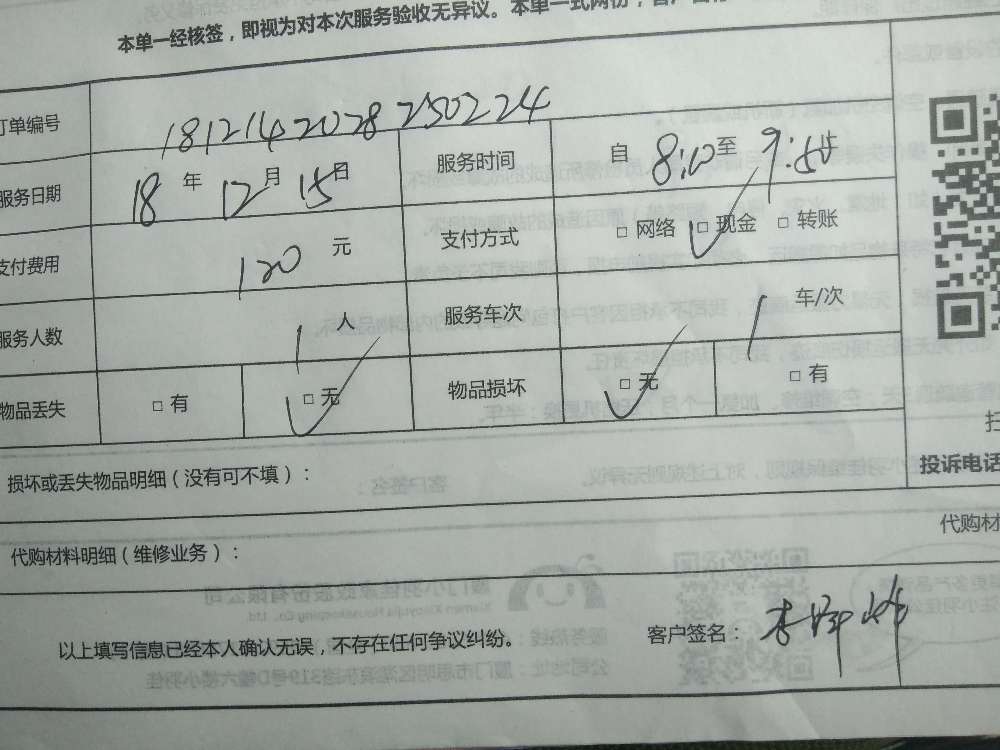 本单一经核签，即视为对本次服务验收无异议。本单一式两份，客户
订单编号 1812142028250224
服务日期 18年12月15日 服务时间 自8:10至9:50止
支付费用 120元 支付方式 □网络 □现金 □转账
服务人数 1人 服务车次 1车/次
物品丢失 □有 □无 物品损坏 □无 □有
扫
损坏或丢失物品明细（没有可不填）： 投诉电话
代购材料明细（维修业务）： 代购材
以上填写信息已经本人确认无误，不存在任何争议纠纷。 客户签名：李